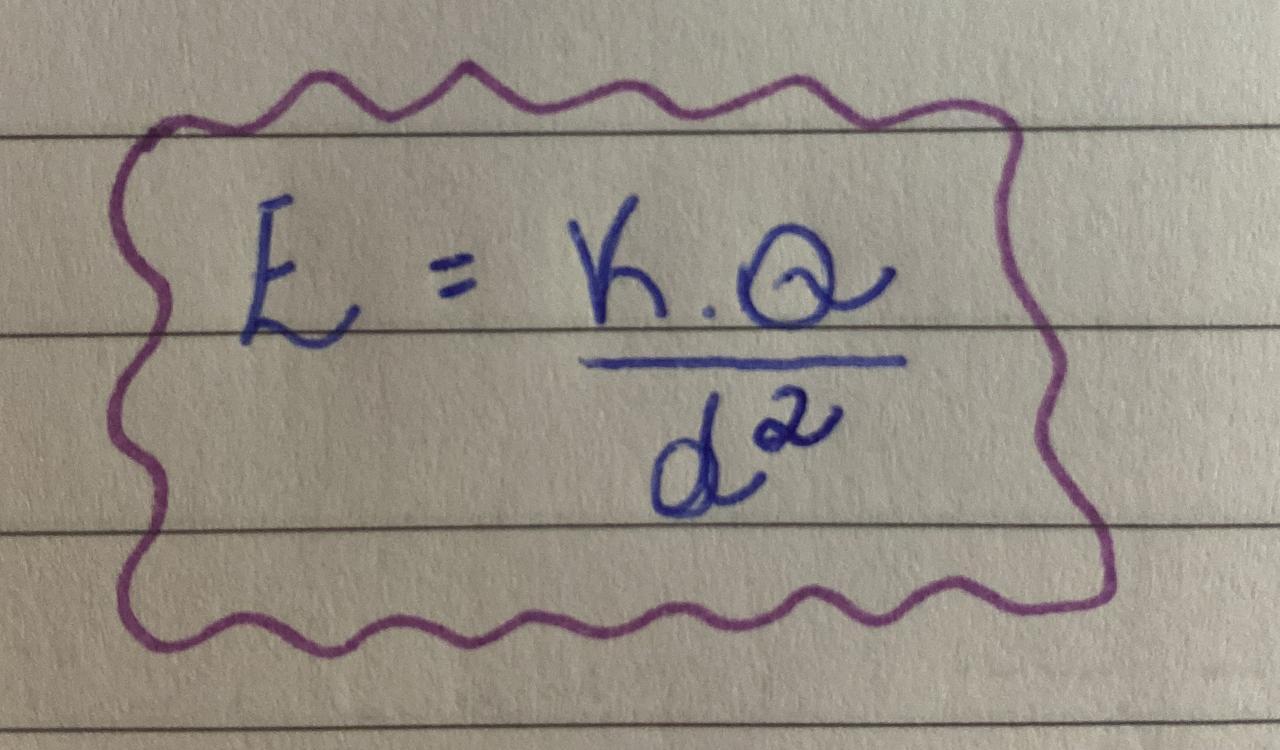 E = K . Q
d²